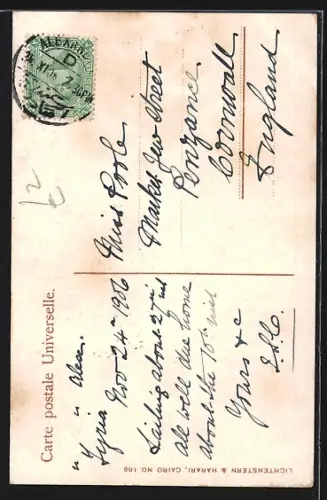 Carte postale Universelle.
"Syria" Alex.
Nov 24th 1906
Sailing about 27th inst
all well due home
about the 10th inst
Yours &c
Miss Poole
Market Jew Street
Penzance
Cornwall
England
ALEXAND
D
LICHTENSTERN & HARARI, CAIRO NO. 166